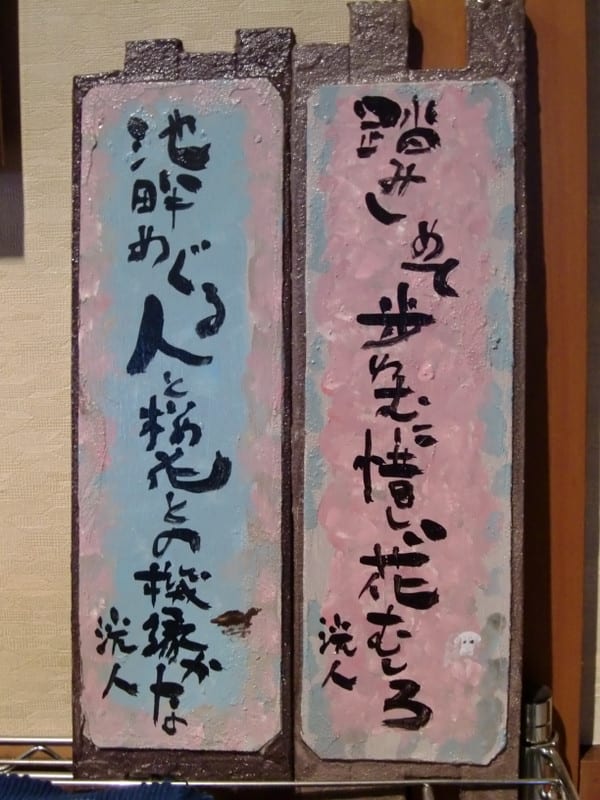 踏みしめて歩むに惜しい花むしろ
池畔めぐる人と桜花との機縁かな